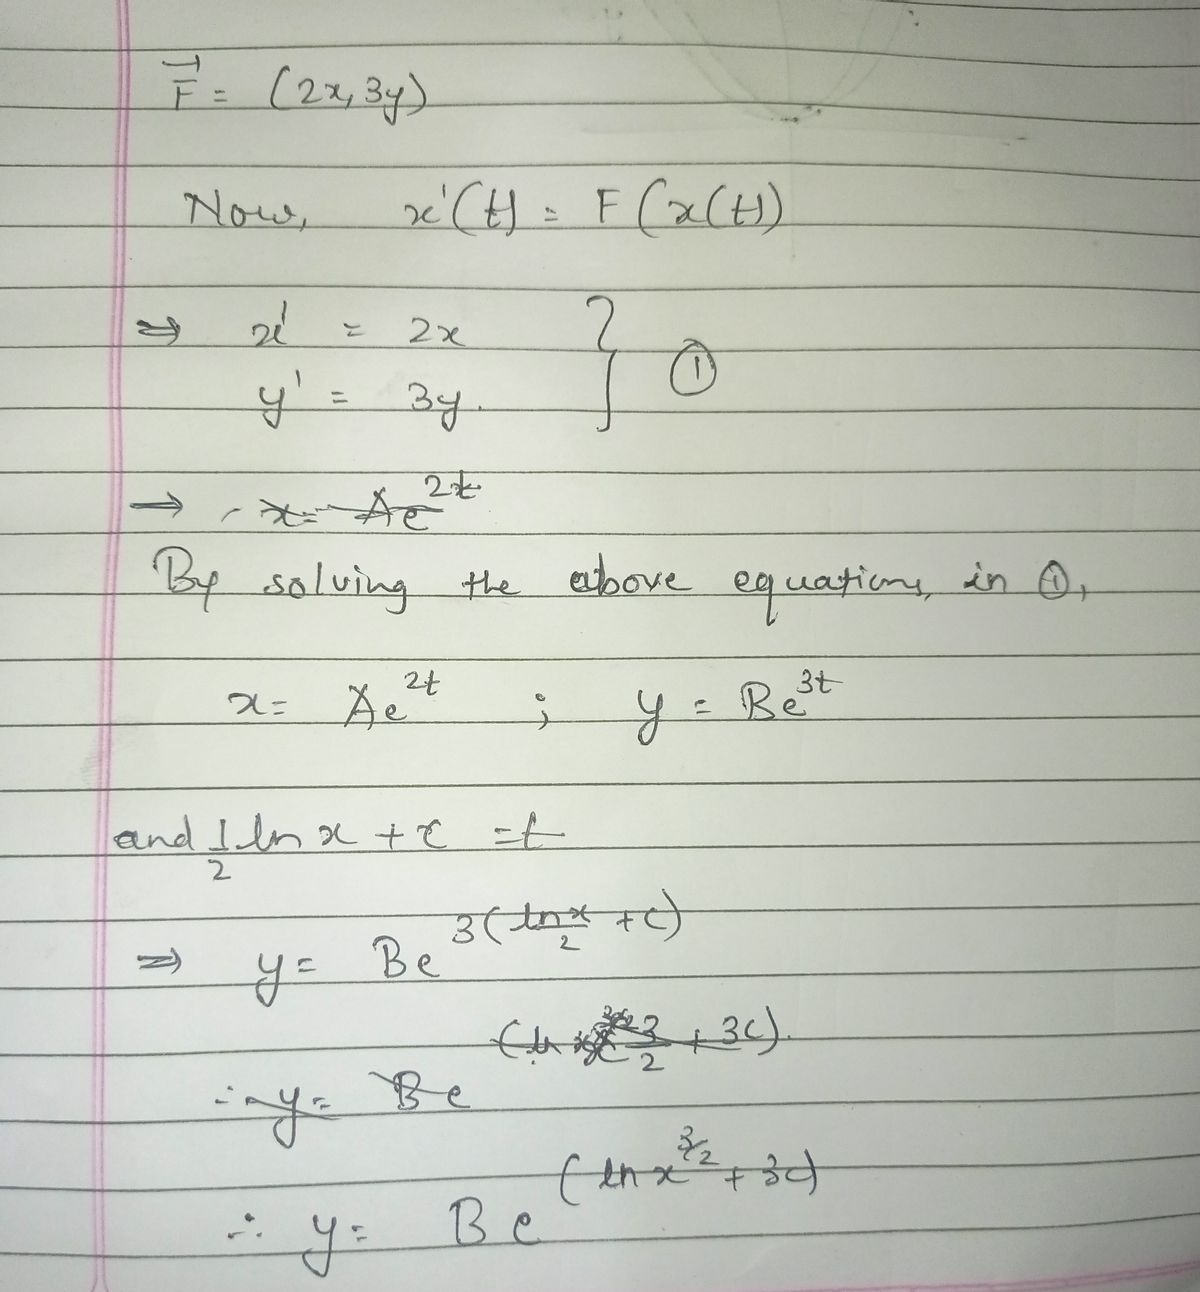 F⃗ = (2x, 3y)
Now, x'(t) = F(x(t))
⇒ x' = 2x
y' = 3y. } ①
⇒ x = Ae^2t
By solving the above equations, in ①,
x = Ae^2t ; y = Be^3t
and 1/2 ln x + c = t
⇒ y = Be^3(ln x/2 + c)
∴ y = Be^(ln x 3/2 + 3c).
∴ y = Be^(ln x^3/2 + 3c)